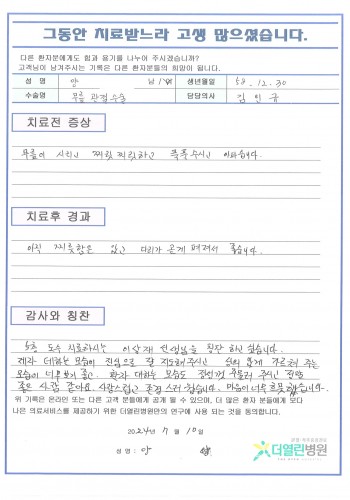 그동안 치료받느라 고생 많으셨습니다.
다른 환자분에게도 힘과 용기를 나누어 주시겠습니까?
고객님이 남겨주시는 기록은 다른 환자분들의 희망이 됩니다.
성 명 안 남 / 생년월일 54. 12. 30
수술명 무릎 관절수술 담당의사 김민규
치료전 증상
무릎이 시리고 찌릿찌릿하고 욱쑤시고 아파습니다.
치료후 경과
아직 찌릿함은 있고 다리가 곧게 펴져서 좋습니다.
감사와 칭찬
5층 도수 치료하시는 이상재 선생님을 칭찬 하고 싶습니다.
대하는 모습이 진심으로 잘 지도해주시고
모습이 너무 보기 좋고 환자 대하는 모습도 주시고 정말
좋은 사람 같아요. 사랑스럽고 존경 스러웠습니다. 마음이 너무
위 기록은 온라인 또는 다른 고객 분들에게 공개 될 수 있으며, 더 많은 환자 분들에게 보다
나은 의료서비스를 제공하기 위한 더열린병원만의 연구에 사용 되는 것을 동의합니다.
2024년 7월 10일
성 명 : 안
더열린병원